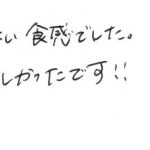 い食感でした。
しかったです!!